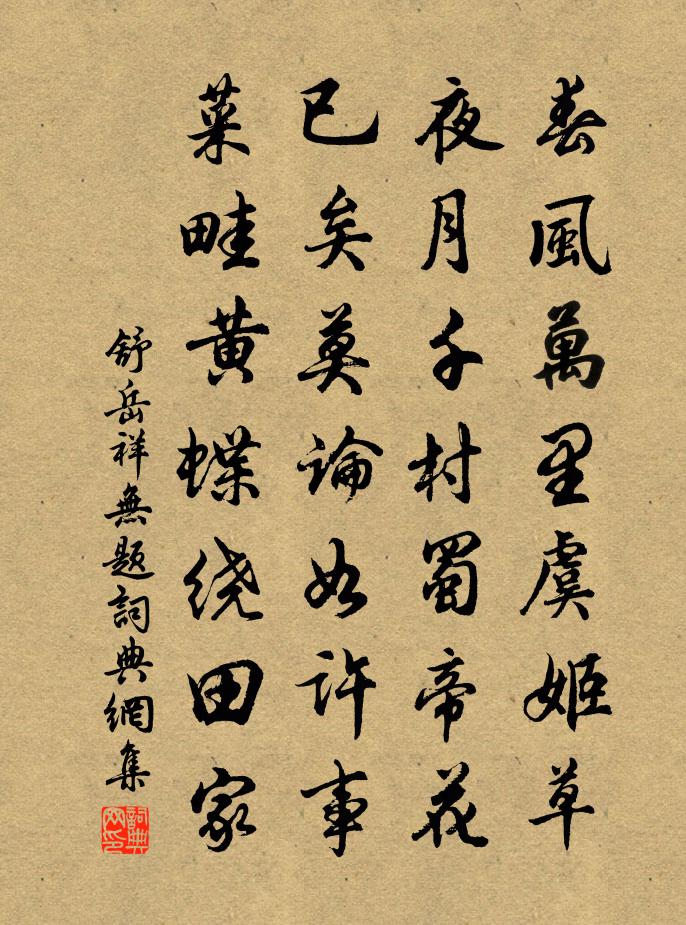 春風萬里虞姬草
夜月千村蜀帝花
已矣莫論如許事
菜畦黄蝶绕田家
舒岳祥無题詞典網集
詞典网印